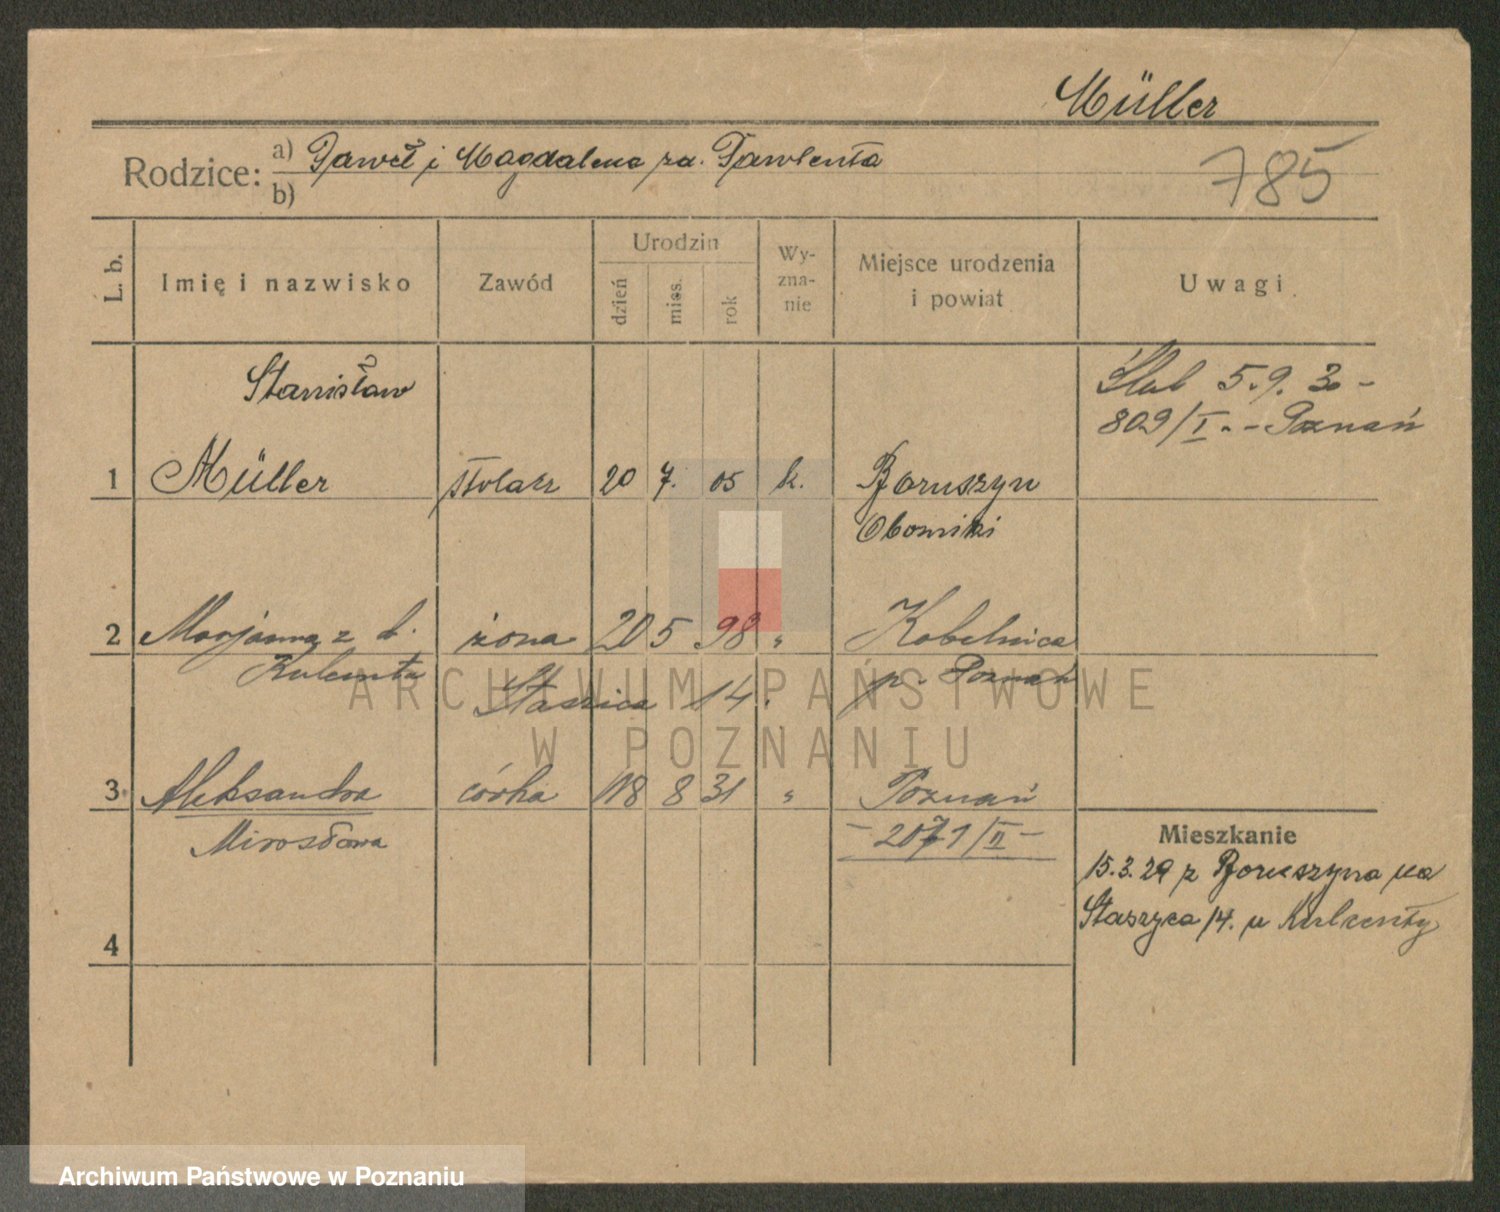 Müller
Rodzice: a) Paweł i Magdalena zd. Pawlenta
b)
785
L. b. Imię i nazwisko Zawód Urodzin dzień mies. rok Wy-zna-nie Miejsce urodzenia i powiat Uwagi
Stanisław
Ślub 5.9.30 –
809/I. – Poznań
1 Müller stolarz 20 7. 05 k. Boruszyn
Oborniki
2 Marjanna z d. żona 20 5 98 " Kobelnica
Kulczenta p. Poznań
Staszica 14.
3 Aleksandra córka 18 8 31 " Poznań
Mirosława – 2071/II –
Mieszkanie
15.3.29 z Boruszyna na
Staszyca 14. u Kulczenty
4
ARCHIWUM PAŃSTWOWE
W POZNANIU
Archiwum Państwowe w Poznaniu